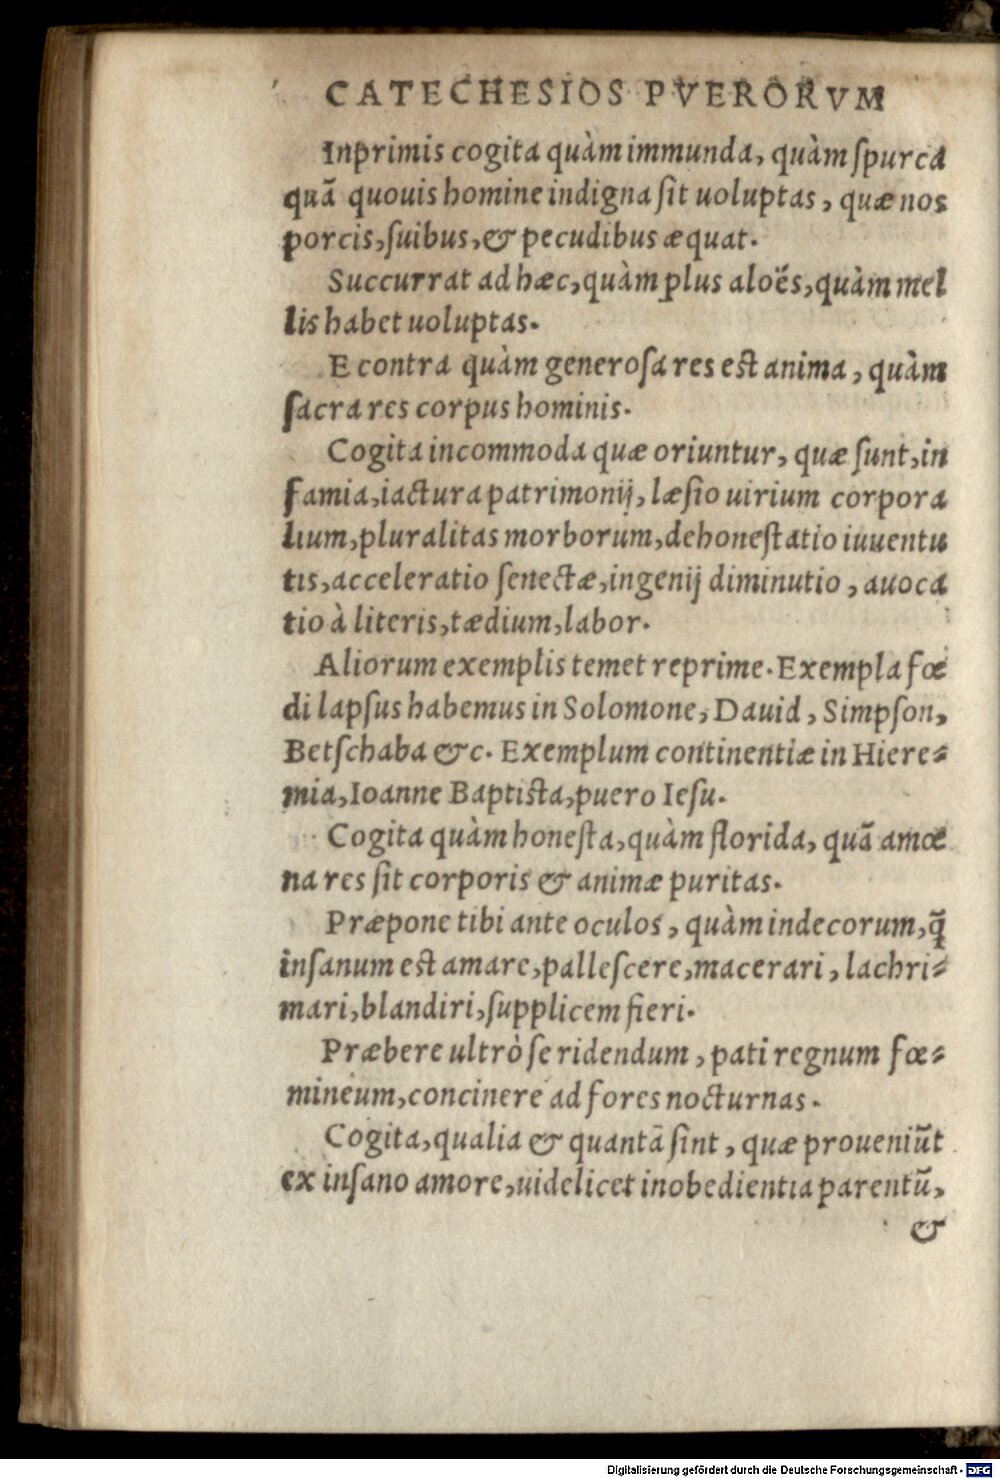 CATECHESIOS PVERORVM
Inprimis cogita quàm immunda, quàm spurca
quā quouis homine indigna sit uoluptas, quæ nos
porcis, suibus, & pecudibus æquat.
Succurrat ad hæc, quàm plus aloës, quàm mel
lis habet uoluptas.
E contra quàm generosa res est anima, quàm
sacra res corpus hominis.
Cogita incommoda quæ oriuntur, quæ sunt, in
famia, iactura patrimonij, læsio uirium corpora
lium, pluralitas morborum, dehonestatio iuuentu
tis, acceleratio senectæ, ingenij diminutio, auoca
tio à literis, tædium, labor.
Aliorum exemplis temet reprime. Exempla fœ
di lapsus habemus in Solomone, Dauid, Simpson,
Betschaba &c. Exemplum continentiæ in Hiere-
mia, Ioanne Baptista, puero Iesu.
Cogita quàm honesta, quàm florida, quā amœ
na res sit corporis & animæ puritas.
Præpone tibi ante oculos, quàm indecorum, q̃
insanum est amare, pallescere, macerari, lachri-
mari, blandiri, supplicem fieri.
Præbere ultrò se ridendum, pati regnum fœ-
mineum, concinere ad fores nocturnas.
Cogita, qualia & quantā sint, quæ proueniūt
ex insano amore, uidelicet inobedientia parentū,
&
Digitalisierung gefördert durch die Deutsche Forschungsgemeinschaft - DFG